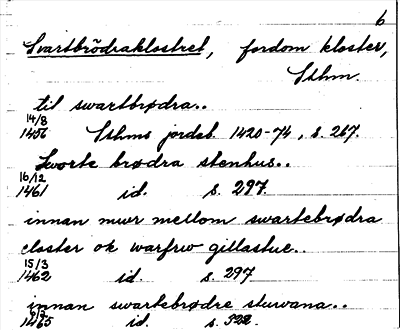 6
Svartbrödraklostret, fordom kloster,
Sthm.
til swartbrødra..
14/8
1456 Sthms jordeb. 1420-74, s. 267.
Sworte brødra stenhus..
16/12
1461 id. s. 297.
innan mwr mellom swartebrødra
closter ok warfrw gillastue..
15/3
1462 id. s. 297
innan swartebrødre stuwana..
1465 id. s. 322.